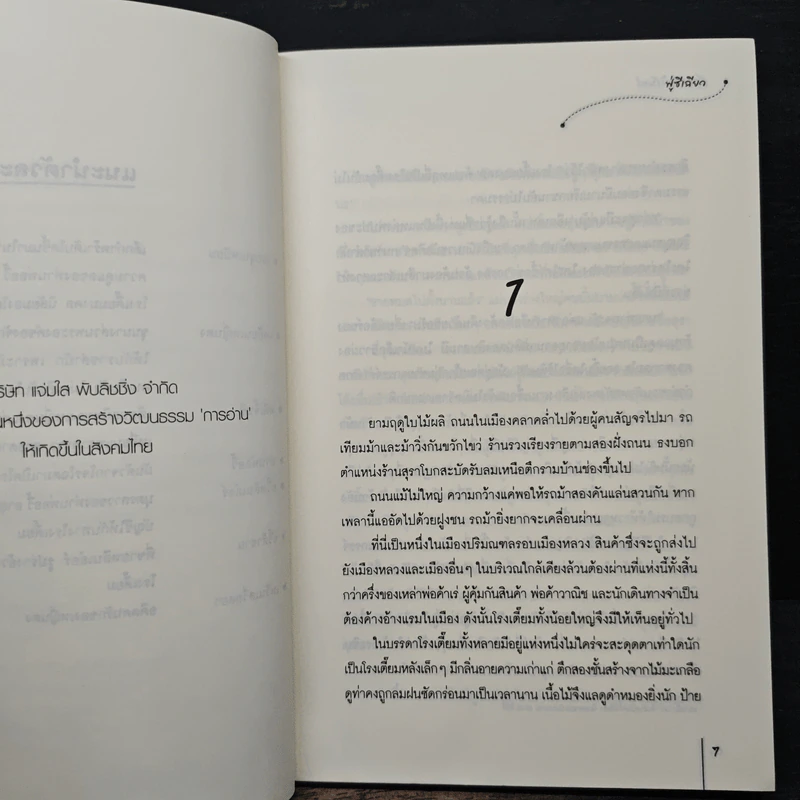 ริษัท แจ่มใส พับลิชชิ่ง จำกัด
นหนึ่งของการสร้างวัฒนธรรม 'การอ่าน'
ให้เกิดขึ้นในสังคมไทย
ฟูซีเฉียว
1
ยามฤดูใบไม้ผลิ ถนนในเมืองคลาคล่ำไปด้วยผู้คนสัญจรไปมา รถ
เทียมม้าและม้าวิ่งกันขวักไขว่ ร้านรวงเรียงรายตามสองฝั่งถนน ธงบอก
ตำแหน่งร้านสุราโบกสะบัดรับลมเหนือตึกรามบ้านช่องขึ้นไป
ถนนแม้ไม่ใหญ่ ความกว้างแค่พอให้รถม้าสองคันแล่นสวนกัน หาก
เพลานี้แออัดไปด้วยฝูงชน รถม้ายิ่งยากจะเคลื่อนผ่าน
ที่นี่เป็นหนึ่งในเมืองปริมณฑลรอบเมืองหลวง สินค้าซึ่งจะถูกส่งไป
ยังเมืองหลวงและเมืองอื่นๆ ในบริเวณใกล้เคียงล้วนต้องผ่านที่แห่งนี้ทั้งสิ้น
กว่าครึ่งของเหล่าพ่อค้าเร่ ผู้คุ้มกันสินค้า พ่อค้าวาณิช และนักเดินทางจำเป็น
ต้องค้างอ้างแรมในเมือง ดังนั้นโรงเตี๊ยมทั้งน้อยใหญ่จึงมีให้เห็นอยู่ทั่วไป
ในบรรดาโรงเตี๊ยมทั้งหลายมีอยู่แห่งหนึ่งไม่ใคร่จะสะดุดตาเท่าใดนัก
เป็นโรงเตี๊ยมหลังเล็กๆ มีกลิ่นอายความเก่าแก่ ตึกสองชั้นสร้างจากไม้มะเกลือ
ดูท่าคงถูกลมฝนซัดกร่อนมาเป็นเวลานาน เนื้อไม้จึงแลดูดำหมองยิ่งนัก ป้าย
7